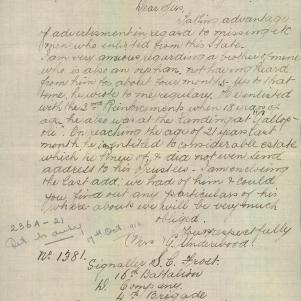 Dear Sirs,
Taking advantage
of advertisment in regard to missing etc
men who enlisted from this State.
I am very anxious regarding a brother of mine
who is also an orphan, not having heard
from him for about four mths. Up to that
time, he wrote to me regularly. He enlisted
with the 2nd Reinforcements when 18 years of
age he also was at the Landing at "Gallipo-
li". On reaching the age of 21 years last
month, he is entitled to considerable estate
which he knew of, & did not even send
address to his Trustees. I am enclosing
the last add. we had of him & could
you find out any particulars of his
whereabouts we will be very much
obliged.
Yours respectfully
(Mrs) Underwood.
236A-21
No 1381.
Signaller D. C. Frost.
16th Battalion
D. Company.
4th Brigade